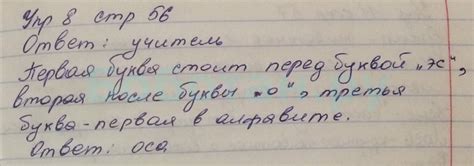 Упр 8 стр 56
Ответ: учитель
Первая буква стоит перед буквой „эс",
вторая после буквы „о", третья
буква - первая в алфавите.
Ответ: оса